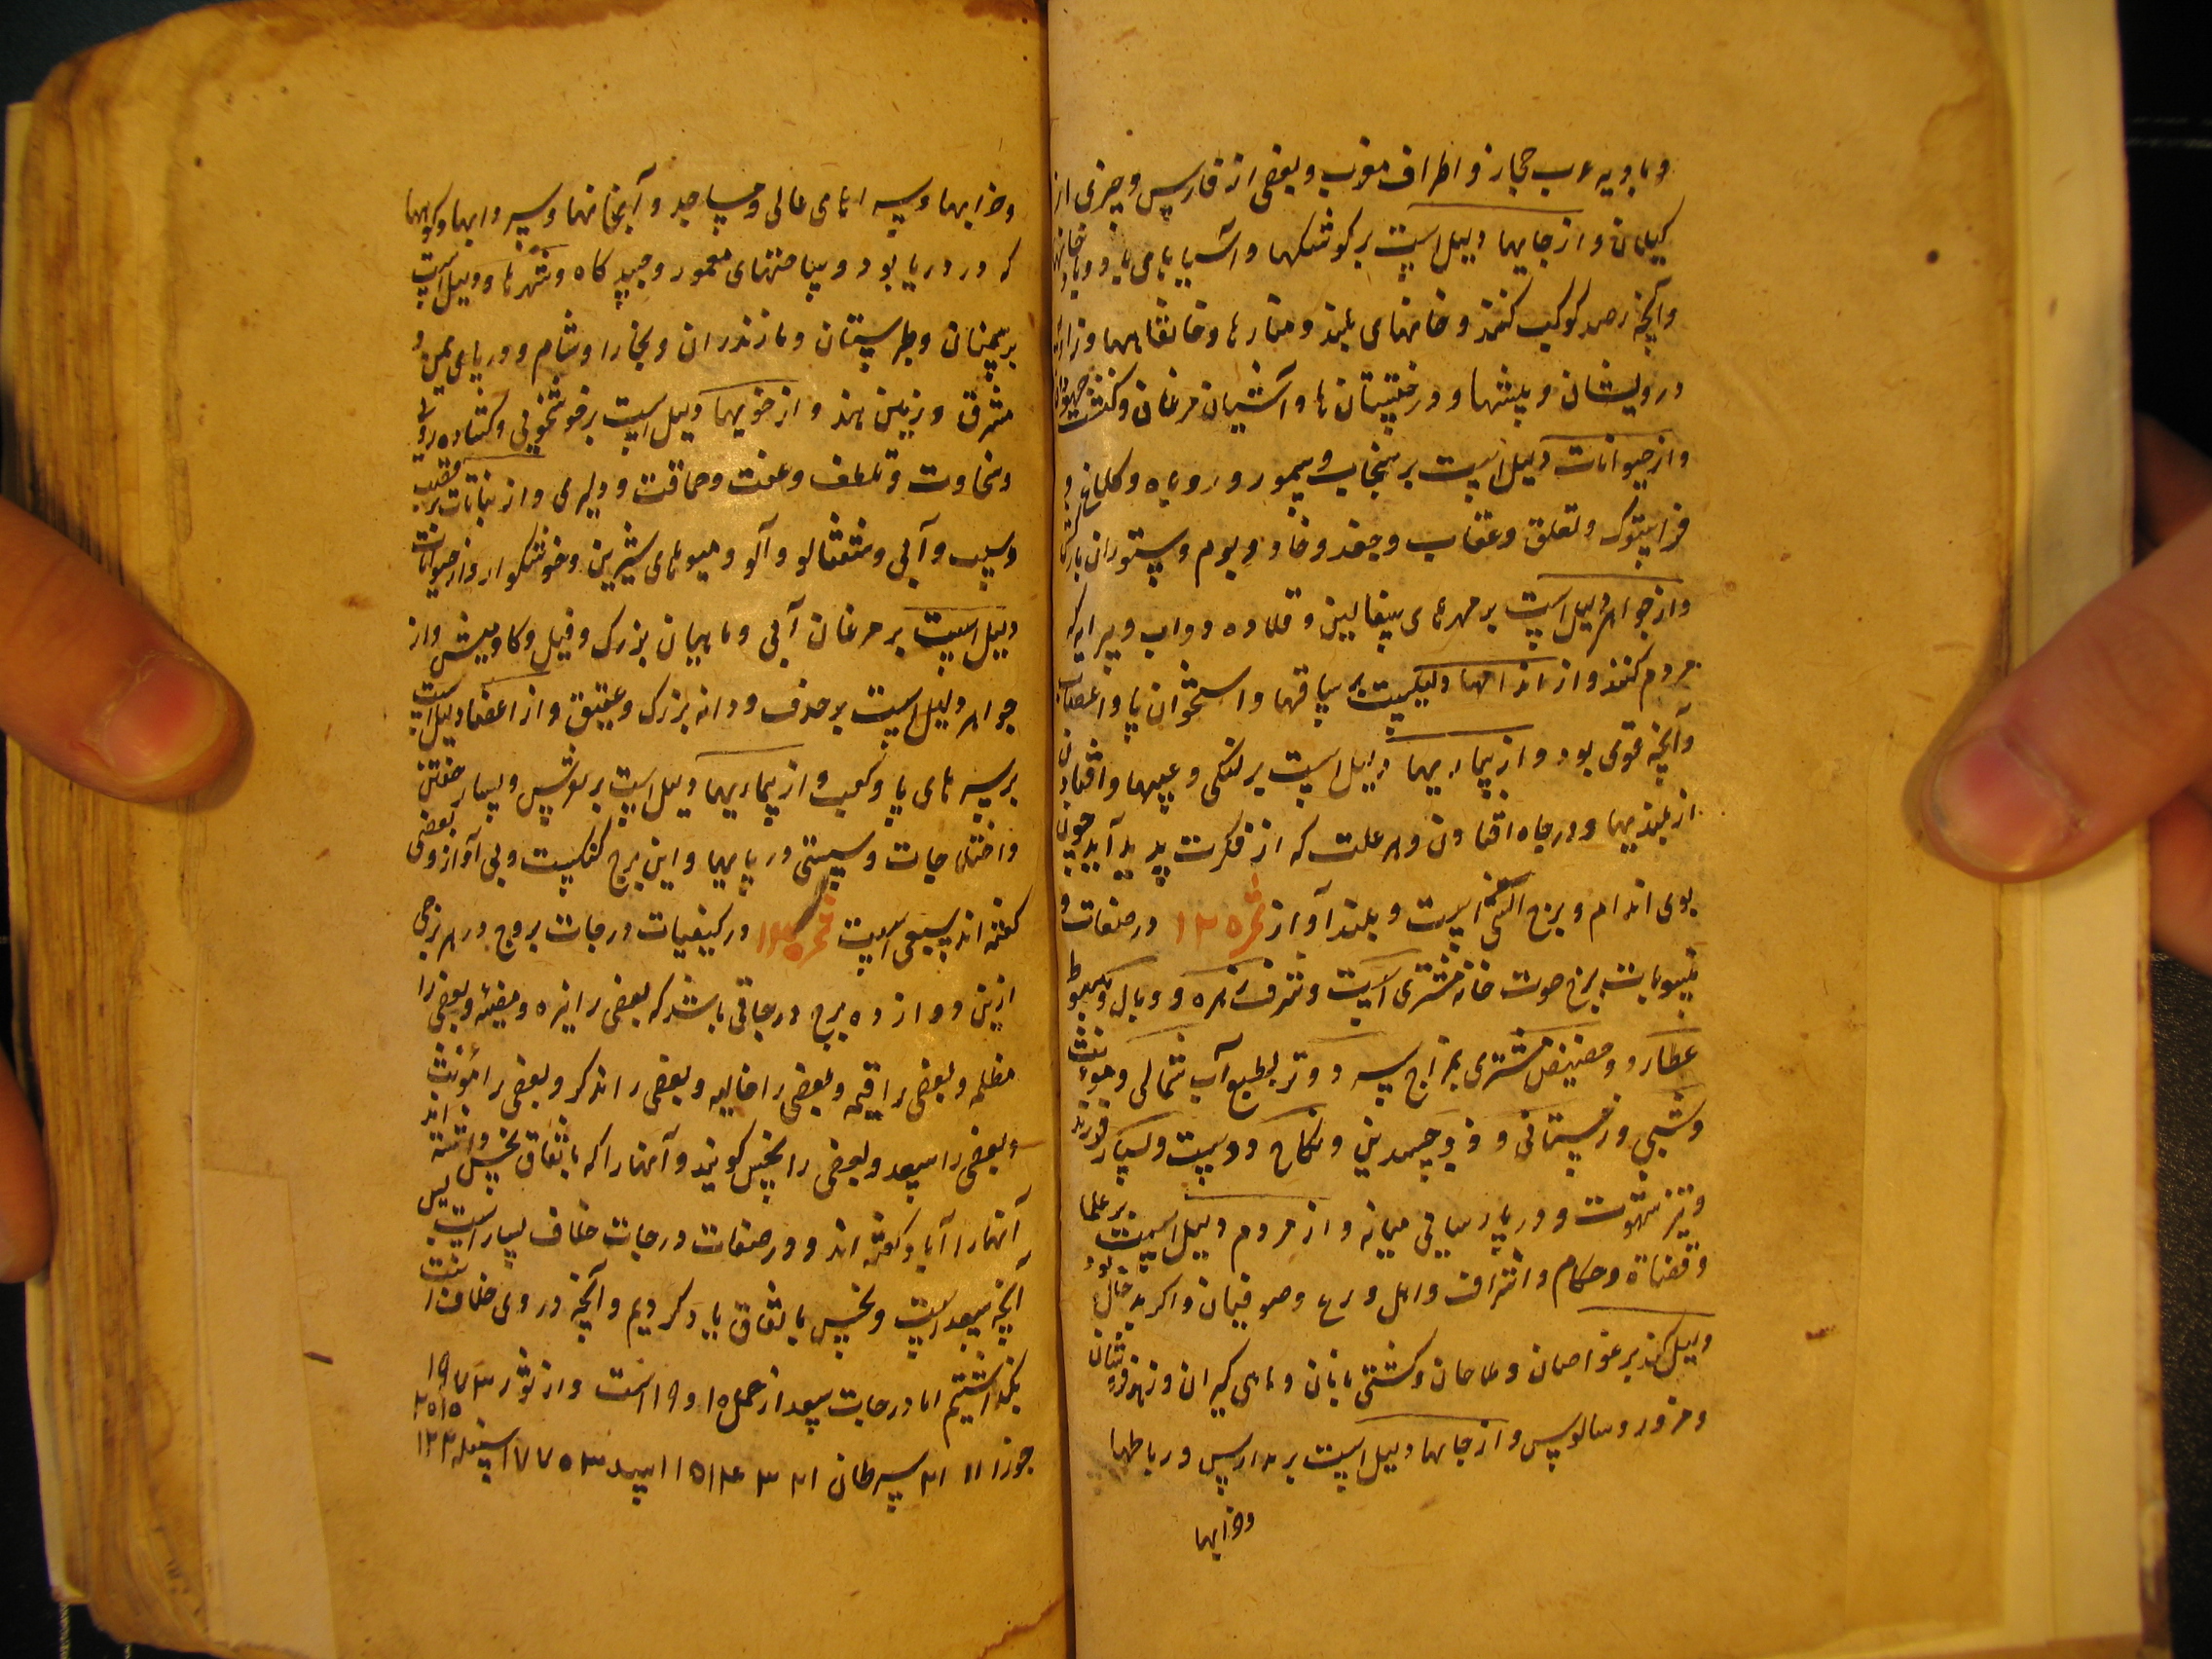 و بادیه عرب حجاز و اطراف مغرب و بعضی از فارس و چیزی از
کیلان و از جایها دلیل است بر کوشکها و آسیاهای باد و بادخانها
و آنچه رصد کوکب کنند و خانهای بلند و منارها و خانقاهها و زاویه
درویشان و پشتها و درختستان ها و آشیان مرغان و کنشت جهودان
و از حیوانات دلیل است بر سنجاب و سمور و روباه و کلاغ و
فراستوک و لقلق و عقاب و جغد و خاد و بوم و ستوران بارکش
و از جواهر دلیل است بر مهرهای سفالین و قلاده دواب و پیرایه که
مردم کنند و از اندامها دلیلست بر ساقها و استخوان پا و اعصاب
و آنچه قوی بود و از بیماریها دلیل است بر لنکی و عیبها و افتادن
از بلندیها و در چاه افتادن و هر علت که از فکرت پدید آید چون
بوی اندام و برج است و بلند آواز ثمر ۱۲۵ در صفات و
منسوبات برج حوت خانه مشتری است و شرف زهره و وبال و هبوط
عطارد و مشتری بمزاج سرد و تر بطبع آب شمالی و مونث
و شبی و زمستانی و ذو جسدین و نکاح دوست و بسیار فرزند
و تیز شهوت و در پارسایی میانه و از مردم دلیل است بر علما
و قضاة و حکام و اشراف و اهل ورع و صوفیان و اکر بد حال بود
دلیل کند بر غواصان و ملاحان و کشتی بانان و ماهی کیران و زهد فروشان
و مزور و سالوس و از جایها دلیل است بر مدارس و رباطها
و خرابها
و خرابها و سراهای عالی و مساجد و آبخانها و سردابها و کوهها
که در دریا بود و بیاضتهای معمور و صیدکاه و شهرها و دلیل است
بر سمنان و طبرستان و مازندران و بخارا و شام و دریای یمن و
مشرق و زمین هند و از خویها دلیل است بر خوشخویی و کشاده رویی
و سخاوت و تلطف و عفت و حماقت و دلیری و از نباتات بر قصب
و سیب و آبی و شفتالو و آلو و میوهای شیرین و خوشکوار و از حیوانات
دلیل است بر مرغان آبی و ماهیان بزرک و فیل و کاومیش و از
جواهر دلیل است بر صدف و دانه بزرک و عقیق و از اعضا دلیل است
بر سرهای پا و کعب و از بیماریها دلیل است بر نقرس و بسیار خفتن
و اختلاجات و سستی در پایها و این برج کنکست و بی آواز و بعضی
کفته اند سبعی است ثمر ۱۲۵ در کیفیات درجات بروج در هر برجی
ازین دوازده برج درجاتی باشد که بعضی را نیره و مضیئه و بعضی را
مظلمه و بعضی را قتمه و بعضی را خالیه و بعضی را مذکر و بعضی را مونث
و بعضی را سعد و بعضی را نحس کویند و آنها را که باتفاق نحس داشته اند
آنها را آبار کفته اند و در صفات درجات خلاف بسیار است پس
آنچه سعد است و نحس باتفاق یاد کردیم و آنچه در وی خلاف است
بکذاشتیم اما درجات سعد از حمل ۱۵ و ۱۹ است و از ثور ۳ ۷ ۱۹
جوزا ۱۱ ۲۱ سرطان ۲۱ ۳ ۱۴ ۱۵ اسد ۳ ۵ ۷ ۱۷ سنبله ۲ ۱۲